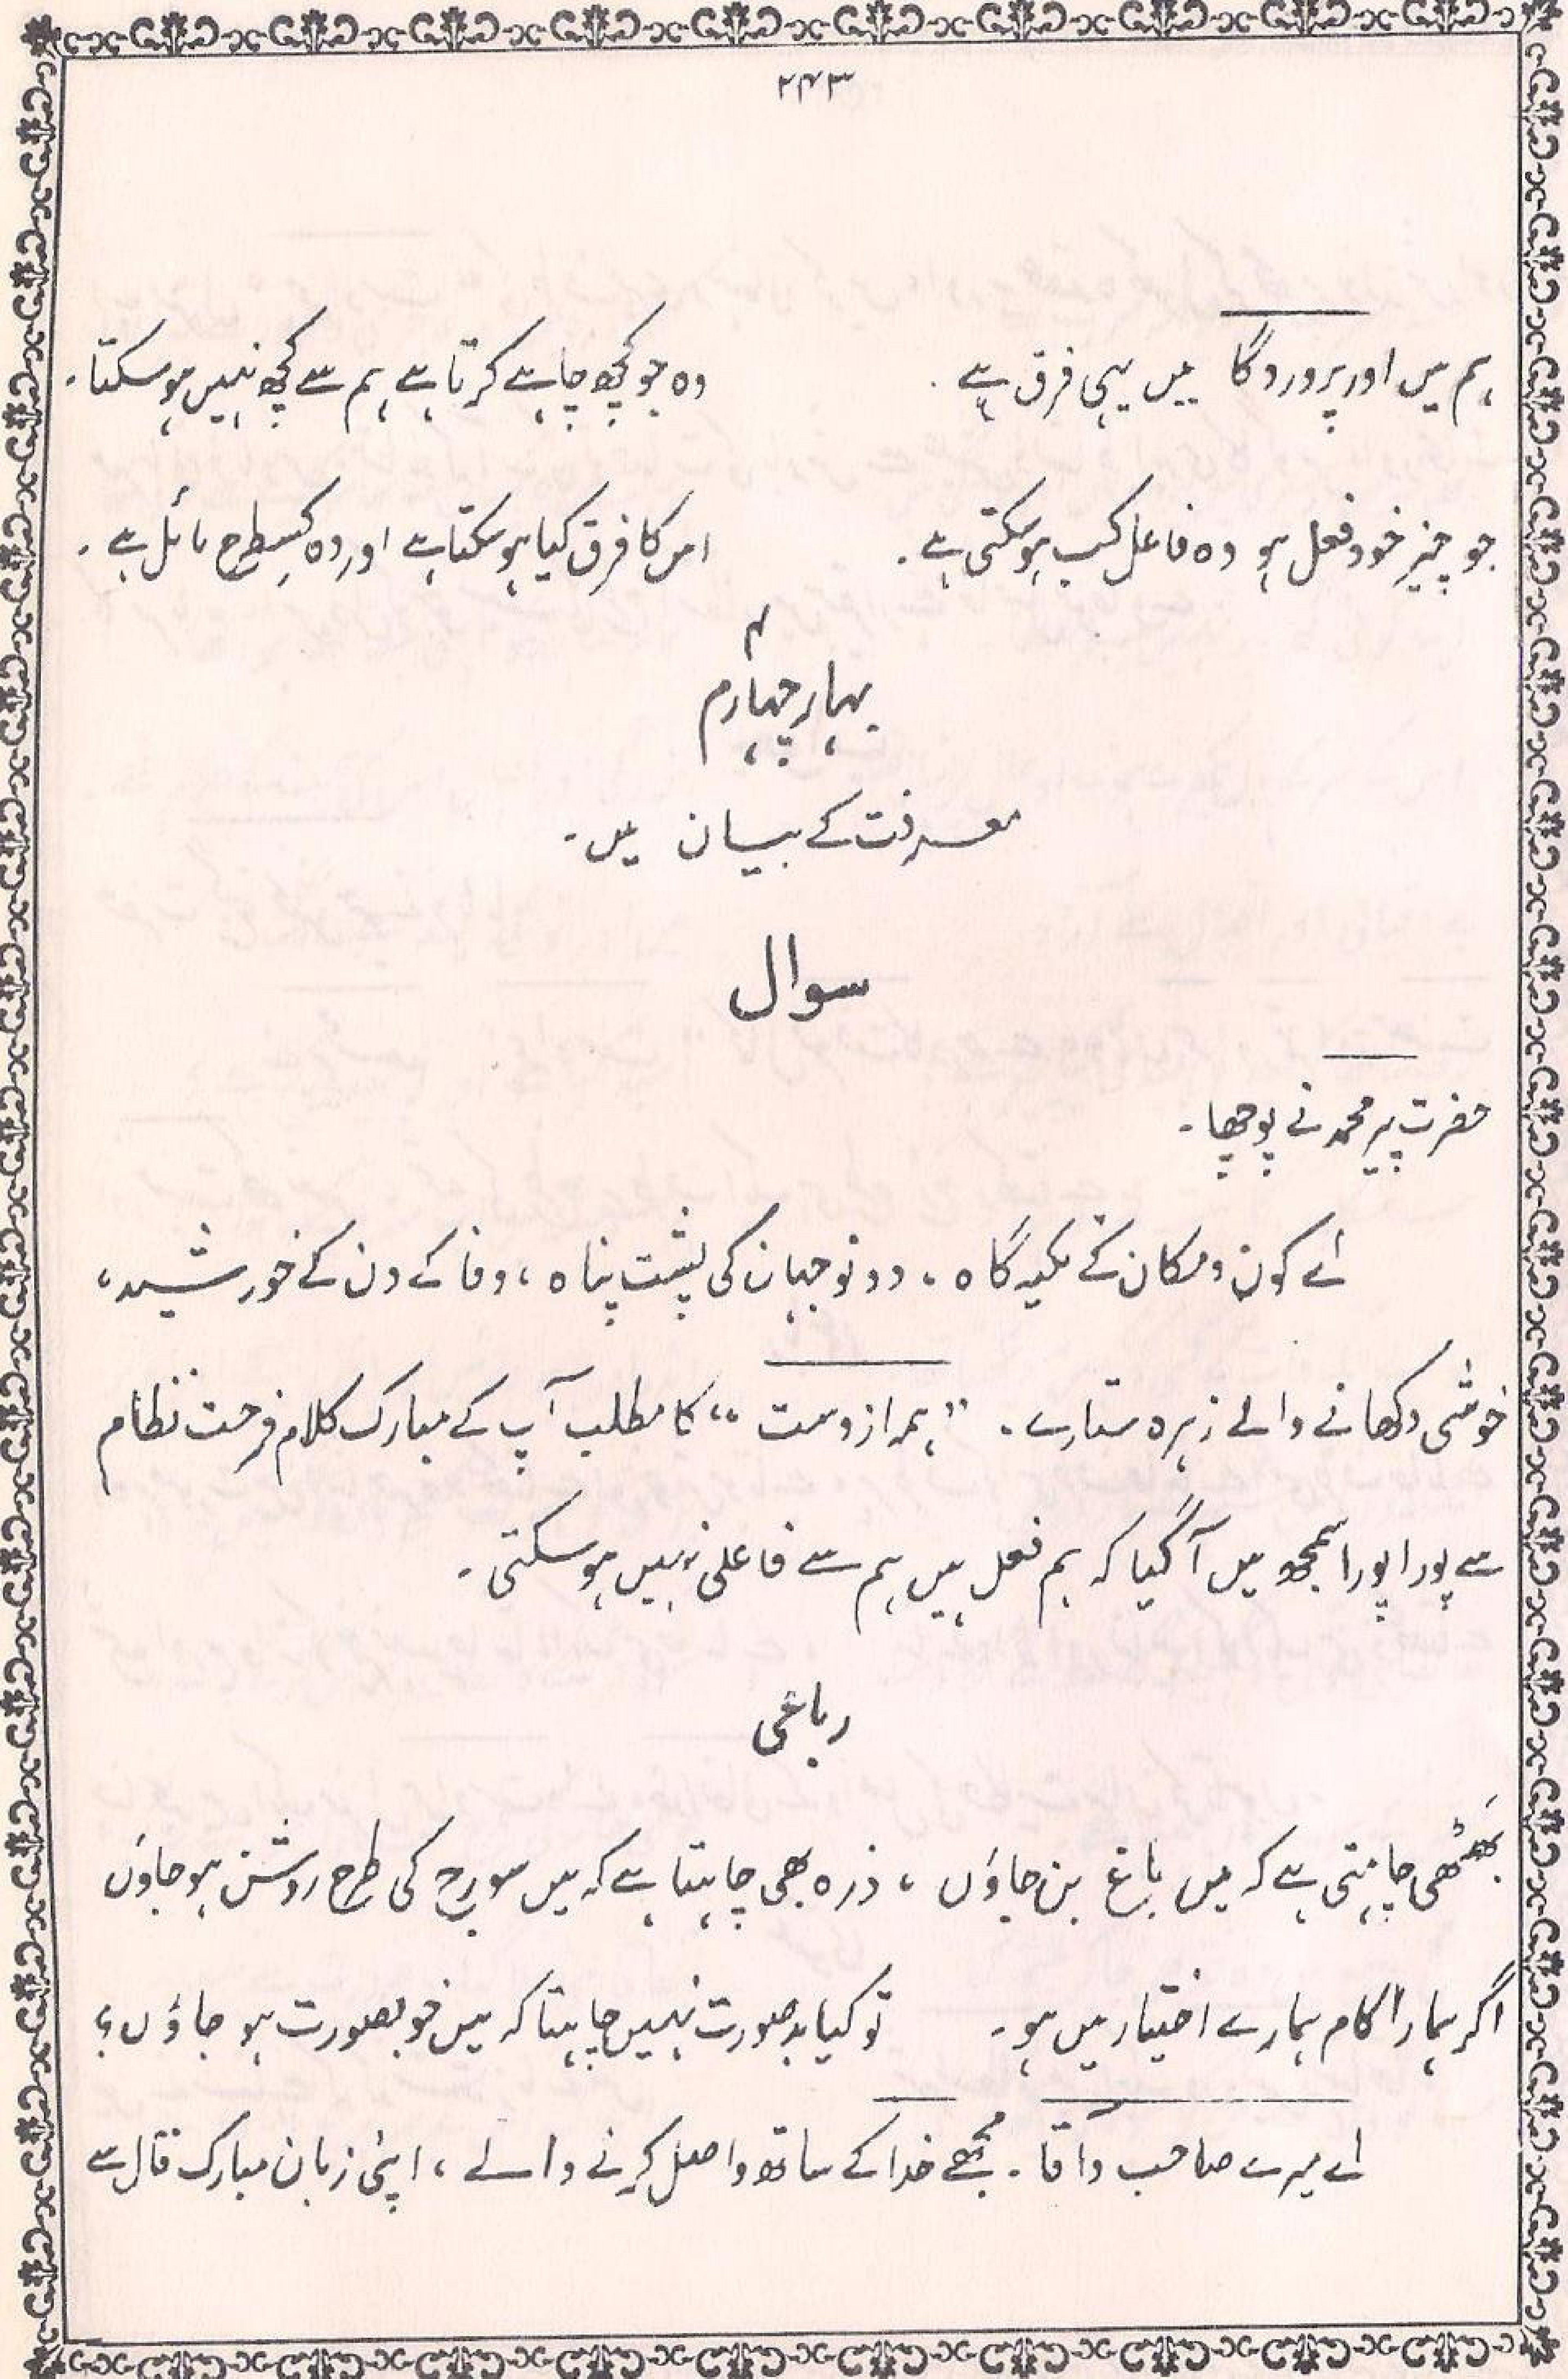 ۲۴۳
ہم میں اور پروردگا میں یہی فرق ہے ۔ وہ جو کچھ چاہے کرتا ہے ہم سے کچھ نہیں ہوسکتا ۔
جو چیز خود فعل ہو وہ فاعل کب ہوسکتی ہے ۔ اس کا فرق کیا ہوسکتا ہے اور وہ کسطرح مائل ہے ۔
۴
بہار چہارم
معرفت کے بیان میں ۔
سوال
حضرت پیر محمد نے پوچھا ۔
اے کون و مکان کے تکیہ گاہ ، دونو جہان کی پشت پناہ ، وفا کے دن کے خورشید ،
خوشی دکھانے والے زہرہ ستارے ۔ " ہمہ ازوست " کا مطلب آپ کے مبارک کلام فرحت نظام
سے پورا پورا سمجھ میں آگیا کہ ہم فعل ہیں ہم سے فاعلی نہیں ہوسکتی ۔
رباعی
بھٹھی چاہتی ہے کہ میں باغ بن جاؤں ، ذرہ بھی چاہتا ہے کہ میں سورج کی طرح روشن ہو جاؤں
اگر ہمارا کام ہمارے اختیار میں ہو ۔ تو کیا بدصورت نہیں چاہتا کہ میں خوبصورت ہو جاؤں ؟
اے میرے صاحب و آقا ۔ مجھے خدا کے ساتھ واصل کرنے والے ، اپنی زبان مبارک قال سے